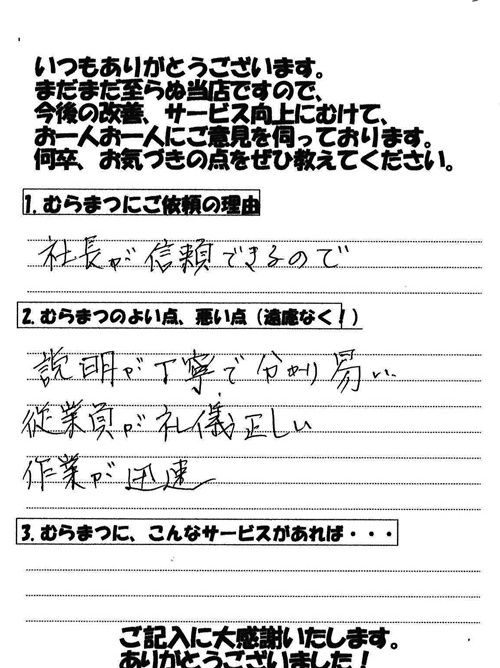 いつもありがとうございます。
まだまだ至らぬ当店ですので、
今後の改善、サービス向上にむけて、
お一人お一人にご意見を伺っております。
何卒、お気づきの点をぜひ教えてください。
1. むらまつにご依頼の理由
社長が信頼できるので
2. むらまつのよい点、悪い点（遠慮なく！）
説明が丁寧で分かり易い
従業員が礼儀正しい
作業が迅速
3. むらまつに、こんなサービスがあれば・・・
ご記入に大感謝いたします。
ありがとうございました！